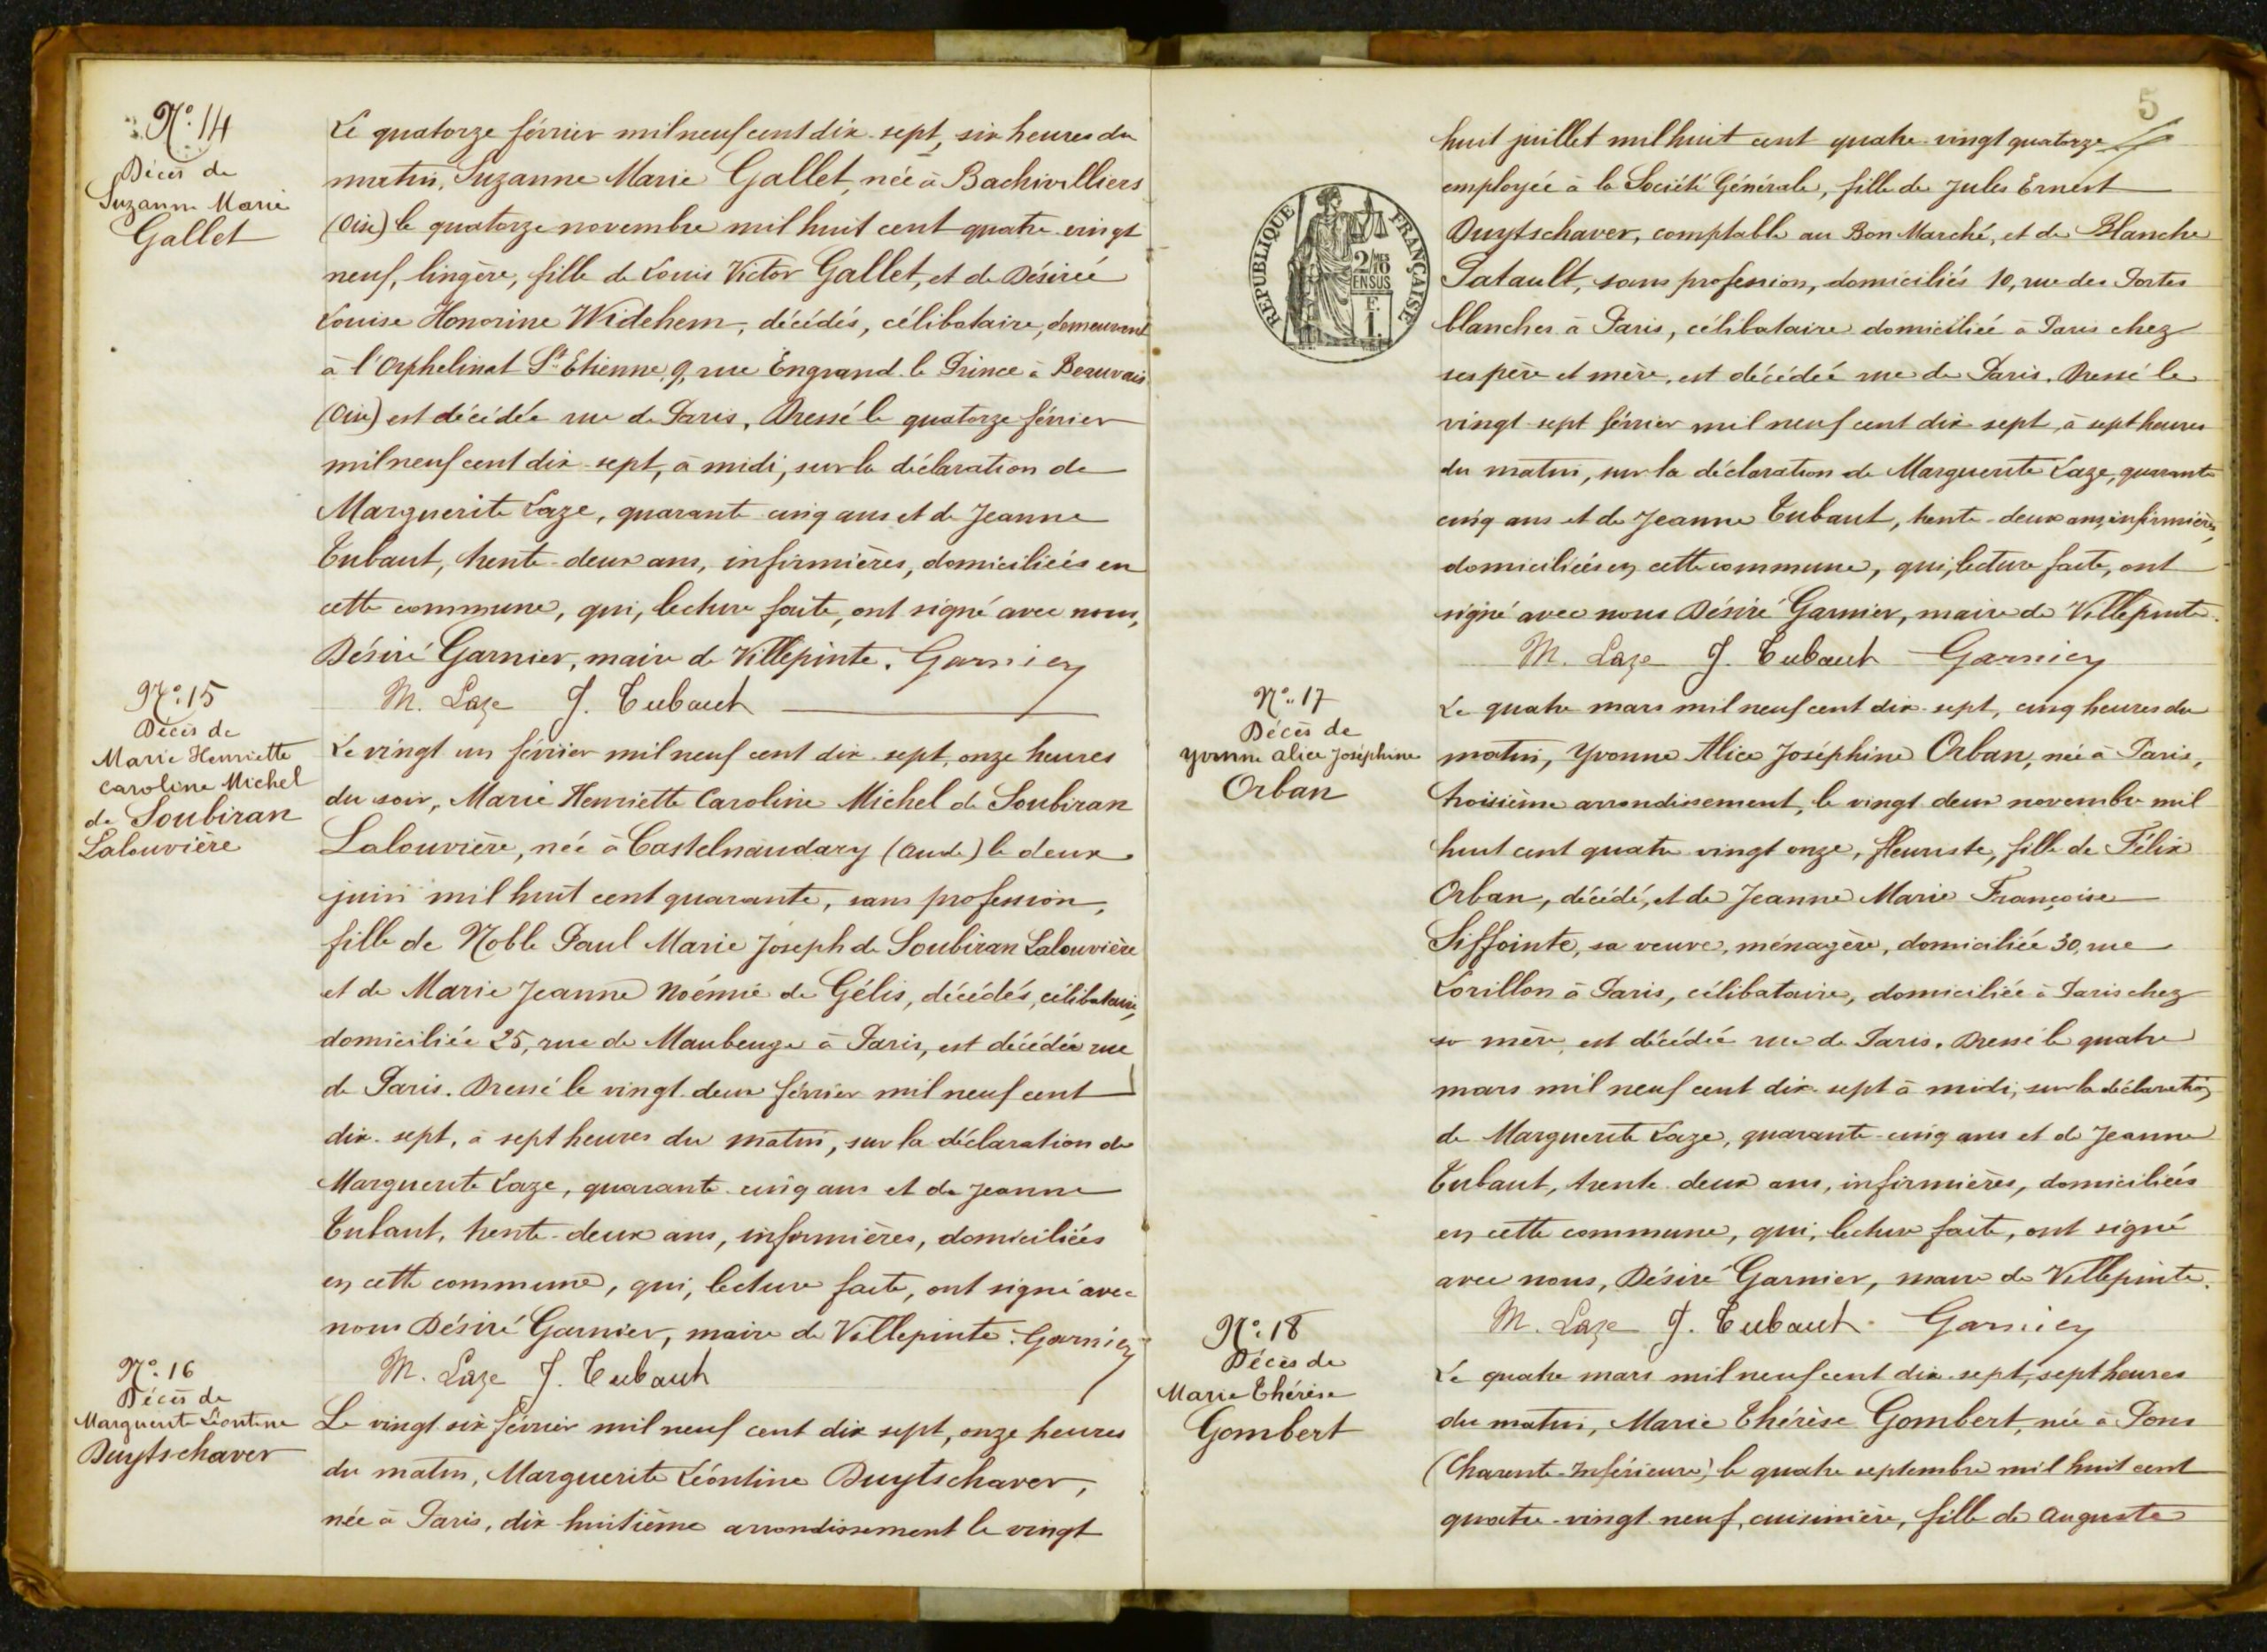 N° 14
Décès de
Suzanne Marie
Gallet
Le quatorze février mil neuf cent dix-sept, six heures du
matin, Suzanne Marie Gallet, née à Bachivilliers
(Oise) le quatorze novembre mil huit cent quatre-vingt
neuf, lingère, fille de Louis Victor Gallet, et de Désirée
Louise Honorine Widehem, décédés, célibataire, demeurant
à l'Orphelinat St Etienne, 9, rue Engrand le Prince à Beauvais
(Oise) est décédée rue de Paris. Dressé le quatorze février
mil neuf cent dix-sept, à midi, sur la déclaration de
Marguerite Laze, quarante-cinq ans et de Jeanne
Tubaut, trente-deux ans, infirmières, domiciliées en
cette commune, qui, lecture faite, ont signé avec nous,
Désiré Garnier, maire de Villepinte. Garnier
M. Laze J. Tubaut
N° 15
Décès de
Marie Henriette
Caroline Michel
de Soubiran
Lalouvière
Le vingt un février mil neuf cent dix-sept, onze heures
du soir, Marie Henriette Caroline Michel de Soubiran
Lalouvière, née à Castelnaudary (Aude) le deux
juin mil huit cent quarante, sans profession,
fille de Noble Paul Marie Joseph de Soubiran Lalouvière
et de Marie Jeanne Noémie de Gélis, décédés, célibataire,
domiciliée 25, rue de Maubeuge à Paris, est décédée rue
de Paris. Dressé le vingt-deux février mil neuf cent
dix-sept, à sept heures du matin, sur la déclaration de
Marguerite Laze, quarante-cinq ans et de Jeanne
Tubaut, trente-deux ans, infirmières, domiciliées
en cette commune, qui, lecture faite, ont signé avec
nous Désiré Garnier, maire de Villepinte. Garnier
M. Laze J. Tubaut
N° 16
Décès de
Marguerite Léontine
Duytschaver
Le vingt-six février mil neuf cent dix sept, onze heures
du matin, Marguerite Léontine Duytschaver,
née à Paris, dix-huitième arrondissement le vingt
5
huit juillet mil huit cent quatre-vingt quatorze
employée à la Société Générale, fille de Jules Ernest
Duytschaver, comptable au Bon Marché, et de Blanche
Patault, sans profession, domiciliés 10, rue des Portes
blanches à Paris, célibataire domiciliée à Paris chez
ses père et mère, est décédée rue de Paris. Dressé le
vingt-sept février mil neuf cent dix sept, à sept heures
du matin, sur la déclaration de Marguerite Laze, quarante
cinq ans et de Jeanne Tubaut, trente-deux ans, infirmières,
domiciliées en cette commune, qui, lecture faite, ont
signé avec nous Désiré Garnier, maire de Villepinte.
M. Laze J. Tubaut Garnier
REPUBLIQUE FRANÇAISE
2/10MES
EN SUS
F.
1.
N° 17
Décès de
Yvonne Alice Joséphine
Orban
Le quatre mars mil neuf cent dix-sept, cinq heures du
matin, Yvonne Alice Joséphine Orban, née à Paris,
troisième arrondissement, le vingt deux novembre mil
huit cent quatre vingt onze, fleuriste, fille de Félix
Orban, décédé, et de Jeanne Marie Françoise
Siffointe, sa veuve, ménagère, domiciliée 30, rue
Lorillon à Paris, célibataire, domiciliée à Paris chez
sa mère, est décédée rue de Paris. Dressé le quatre
mars mil neuf cent dix-sept à midi, sur la déclaration
de Marguerite Laze, quarante-cinq ans et de Jeanne
Tubaut, trente deux ans, infirmières, domiciliées
en cette commune, qui, lecture faite, ont signé
avec nous, Désiré Garnier, maire de Villepinte.
M. Laze J. Tubaut Garnier
N° 18
Décès de
Marie Thérèse
Gombert
Le quatre mars mil neuf cent dix-sept, sept heures
du matin, Marie Thérèse Gombert, née à Pons
(Charente-Inférieure) le quatre septembre mil huit cent
quatre-vingt neuf, cuisinière, fille de Auguste